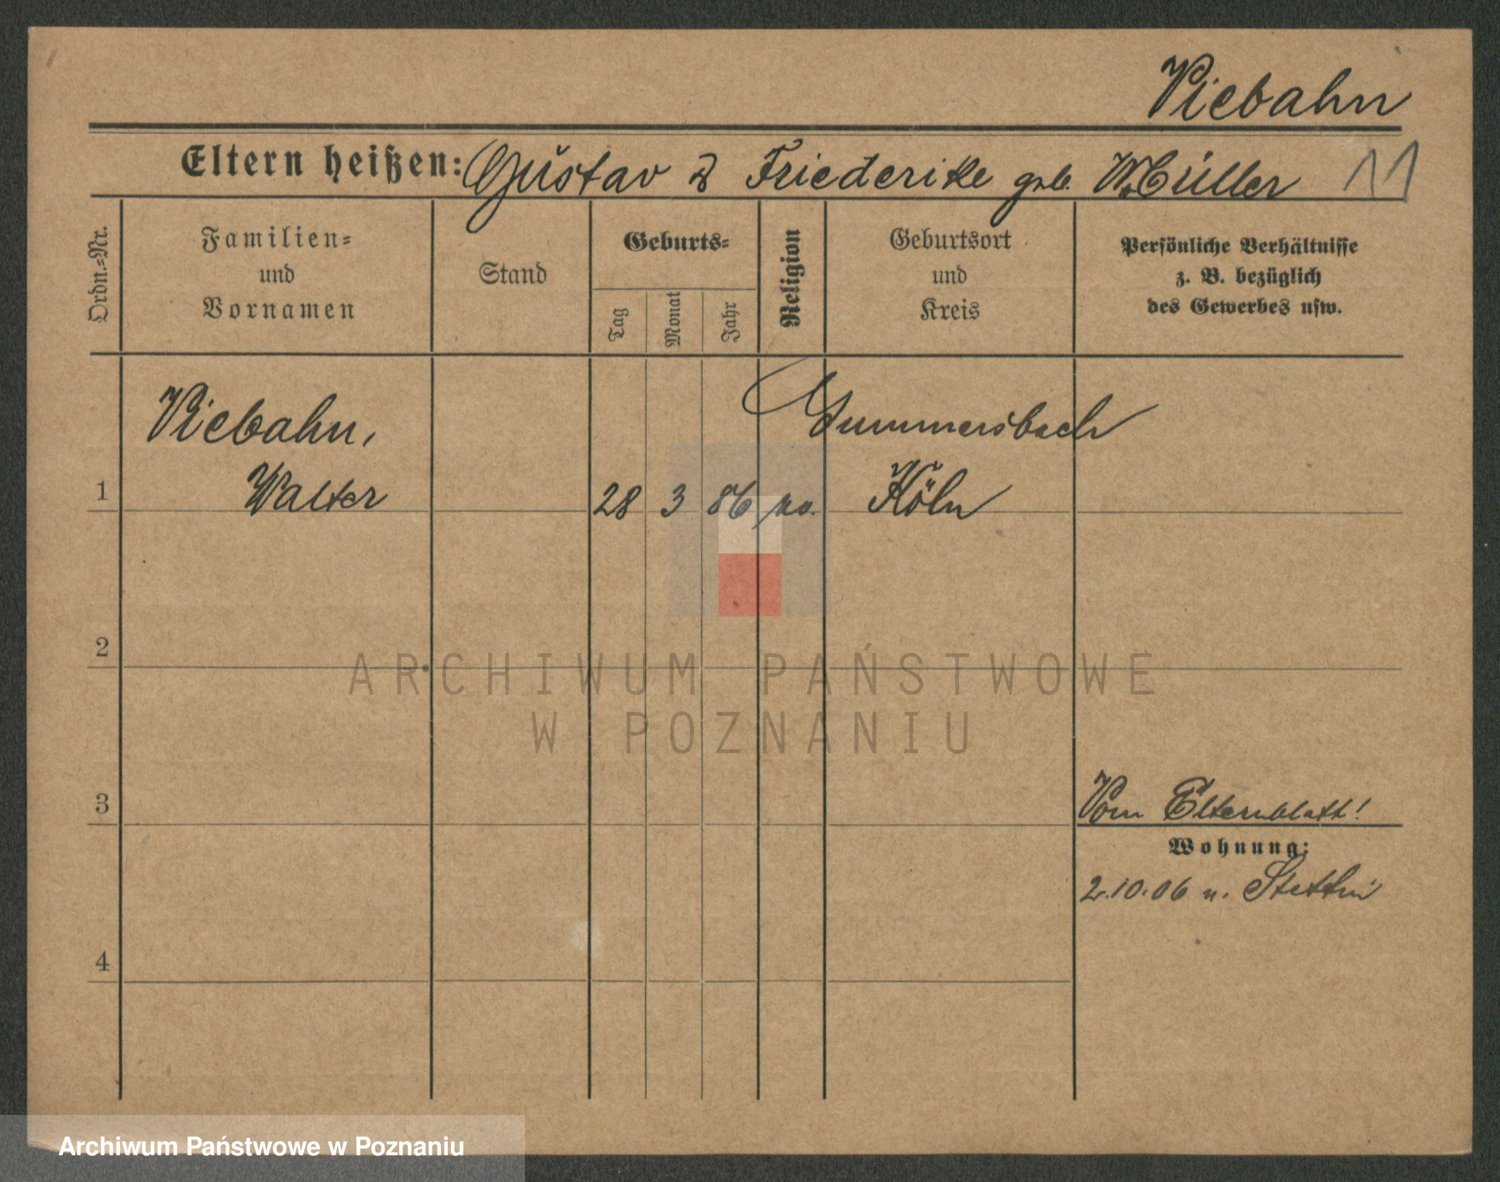 Viebahn
Eltern heißen: Gustav & Friederike geb. Müller 11
Ordn.-Nr.
Familien-
und
Vornamen
Stand
Geburts-
Tag
Monat
Jahr
Religion
Geburtsort
und
Kreis
Persönliche Verhältnisse
z. B. bezüglich
des Gewerbes usw.
Viebahn, Gummersbach
1 Walter 28 3 86 Köln
2
ARCHIWUM PAŃSTWOWE
W POZNANIU
3 Vom Elternblatt!
Wohnung:
2.10.06 n. Stettin
4
Archiwum Państwowe w Poznaniu